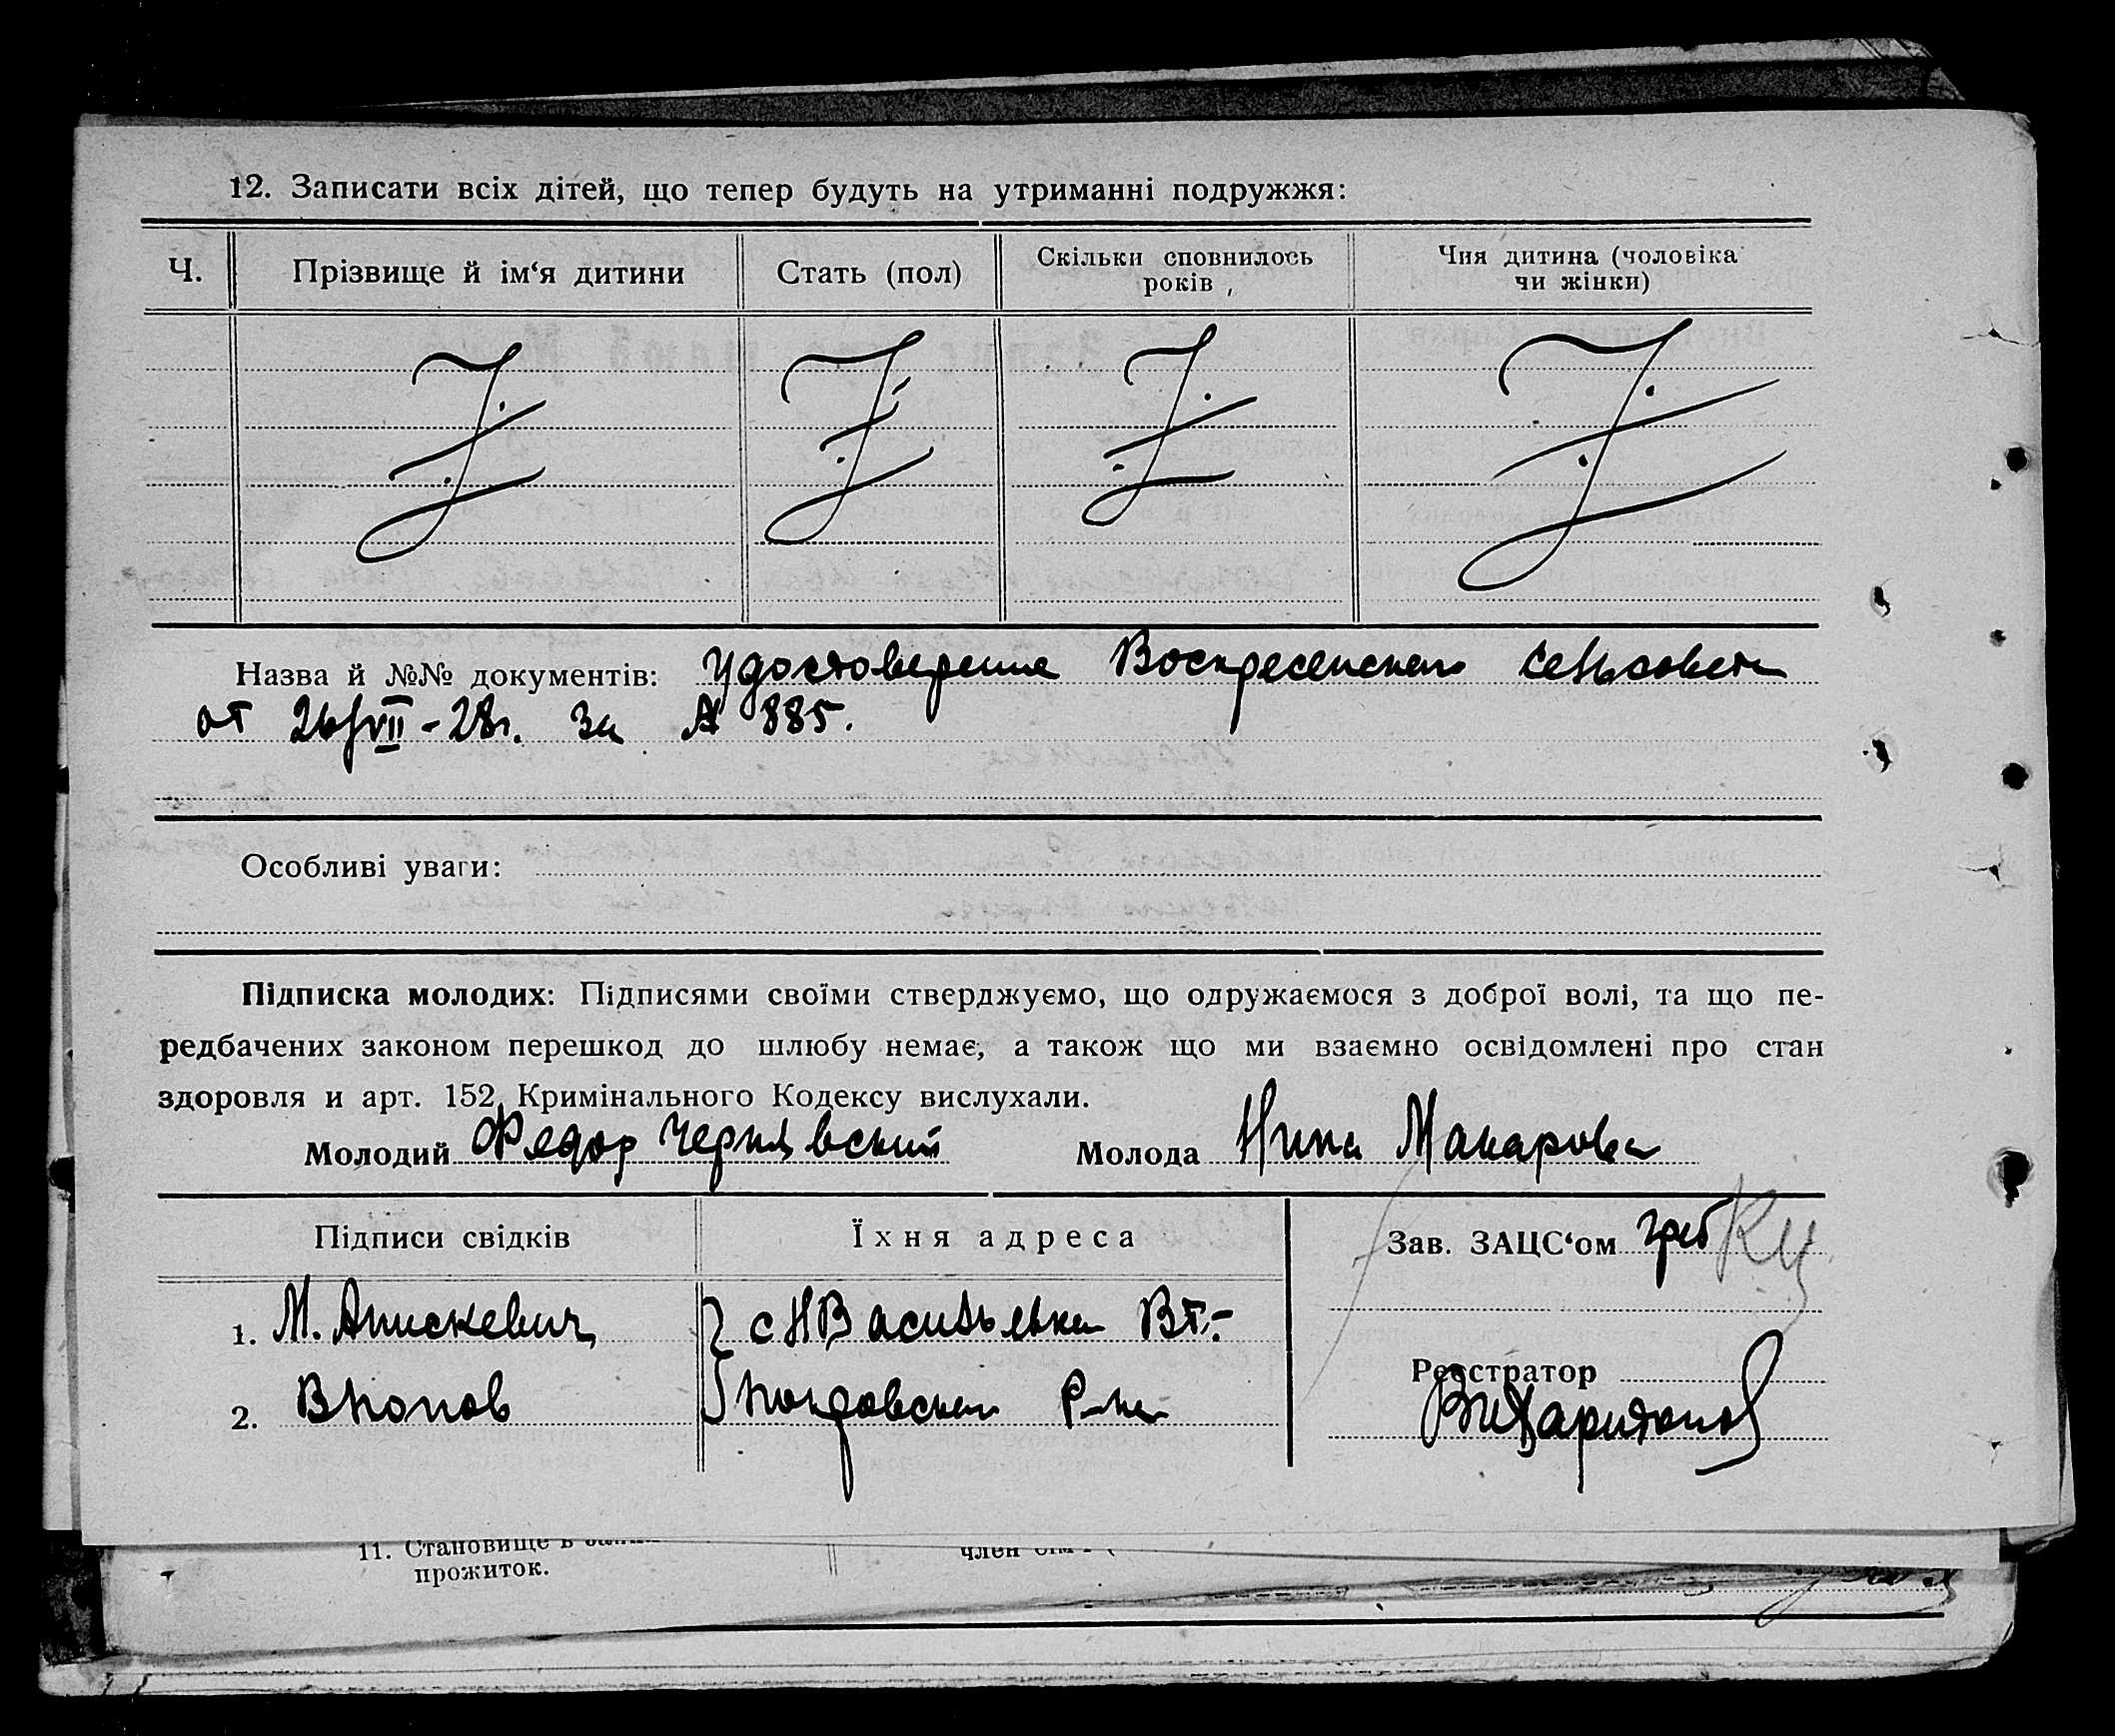 12. Записати всіх дітей, що тепер будуть на утриманні подружжя:
Ч. Прізвище й ім‘я дитини Стать (пол) Скільки сповнилось років Чия дитина (чоловіка чи жінки)
Назва й №№ документів: Удостоверение Воскресенского сельсовета
от 26/VII-28г. за № 885.
Особливі уваги:
Підписка молодих: Підписями своїми стверджуємо, що одружаємося з доброї волі, та що пе-
редбачених законом перешкод до шлюбу немає, а також що ми взаємно освідомлені про стан
здоровля и арт. 152 Кримінального Кодексу вислухали.
Молодий Федор Чернявский Молода Нина Макарова
Підписи свідків Їхня адреса Зав. ЗАЦС‘ом
1. М. Анискевич с Н Васильевка
2. В Попов Р-на
Реєстратор
Харитонов
11. Становище в
прожиток.
член